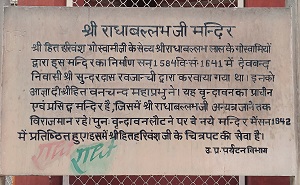 श्री राधाबल्लभ जी मन्दिर
श्री हित हरिवंश गोस्वामी जी के सेव्य श्री राधाबल्लभ लाल के गोस्वामियों
द्वारा इस मन्दिर का निर्माण सन् 1584 वि.सं. 1641 में देवबन्द
निवासी श्री सुन्दरदास खजान्ची द्वारा करवाया गया था। इनको
आज्ञा दी श्री हित वनचन्द्र महाप्रभु ने। यह वृन्दावन का प्राचीन
एवं प्रसिद्ध मन्दिर है, जिसमें श्री राधाबल्लभ जी अन्यत्र जाने तक
विराजमान रहे। पुनः वृन्दावन लौटने पर वे नये मन्दिर में सन 1842
में प्रतिष्ठित हुए। इसमें श्री हित हरिवंश जी के चित्रपट की सेवा है।
उ.प्र. पर्यटन विभाग
राधे राधे